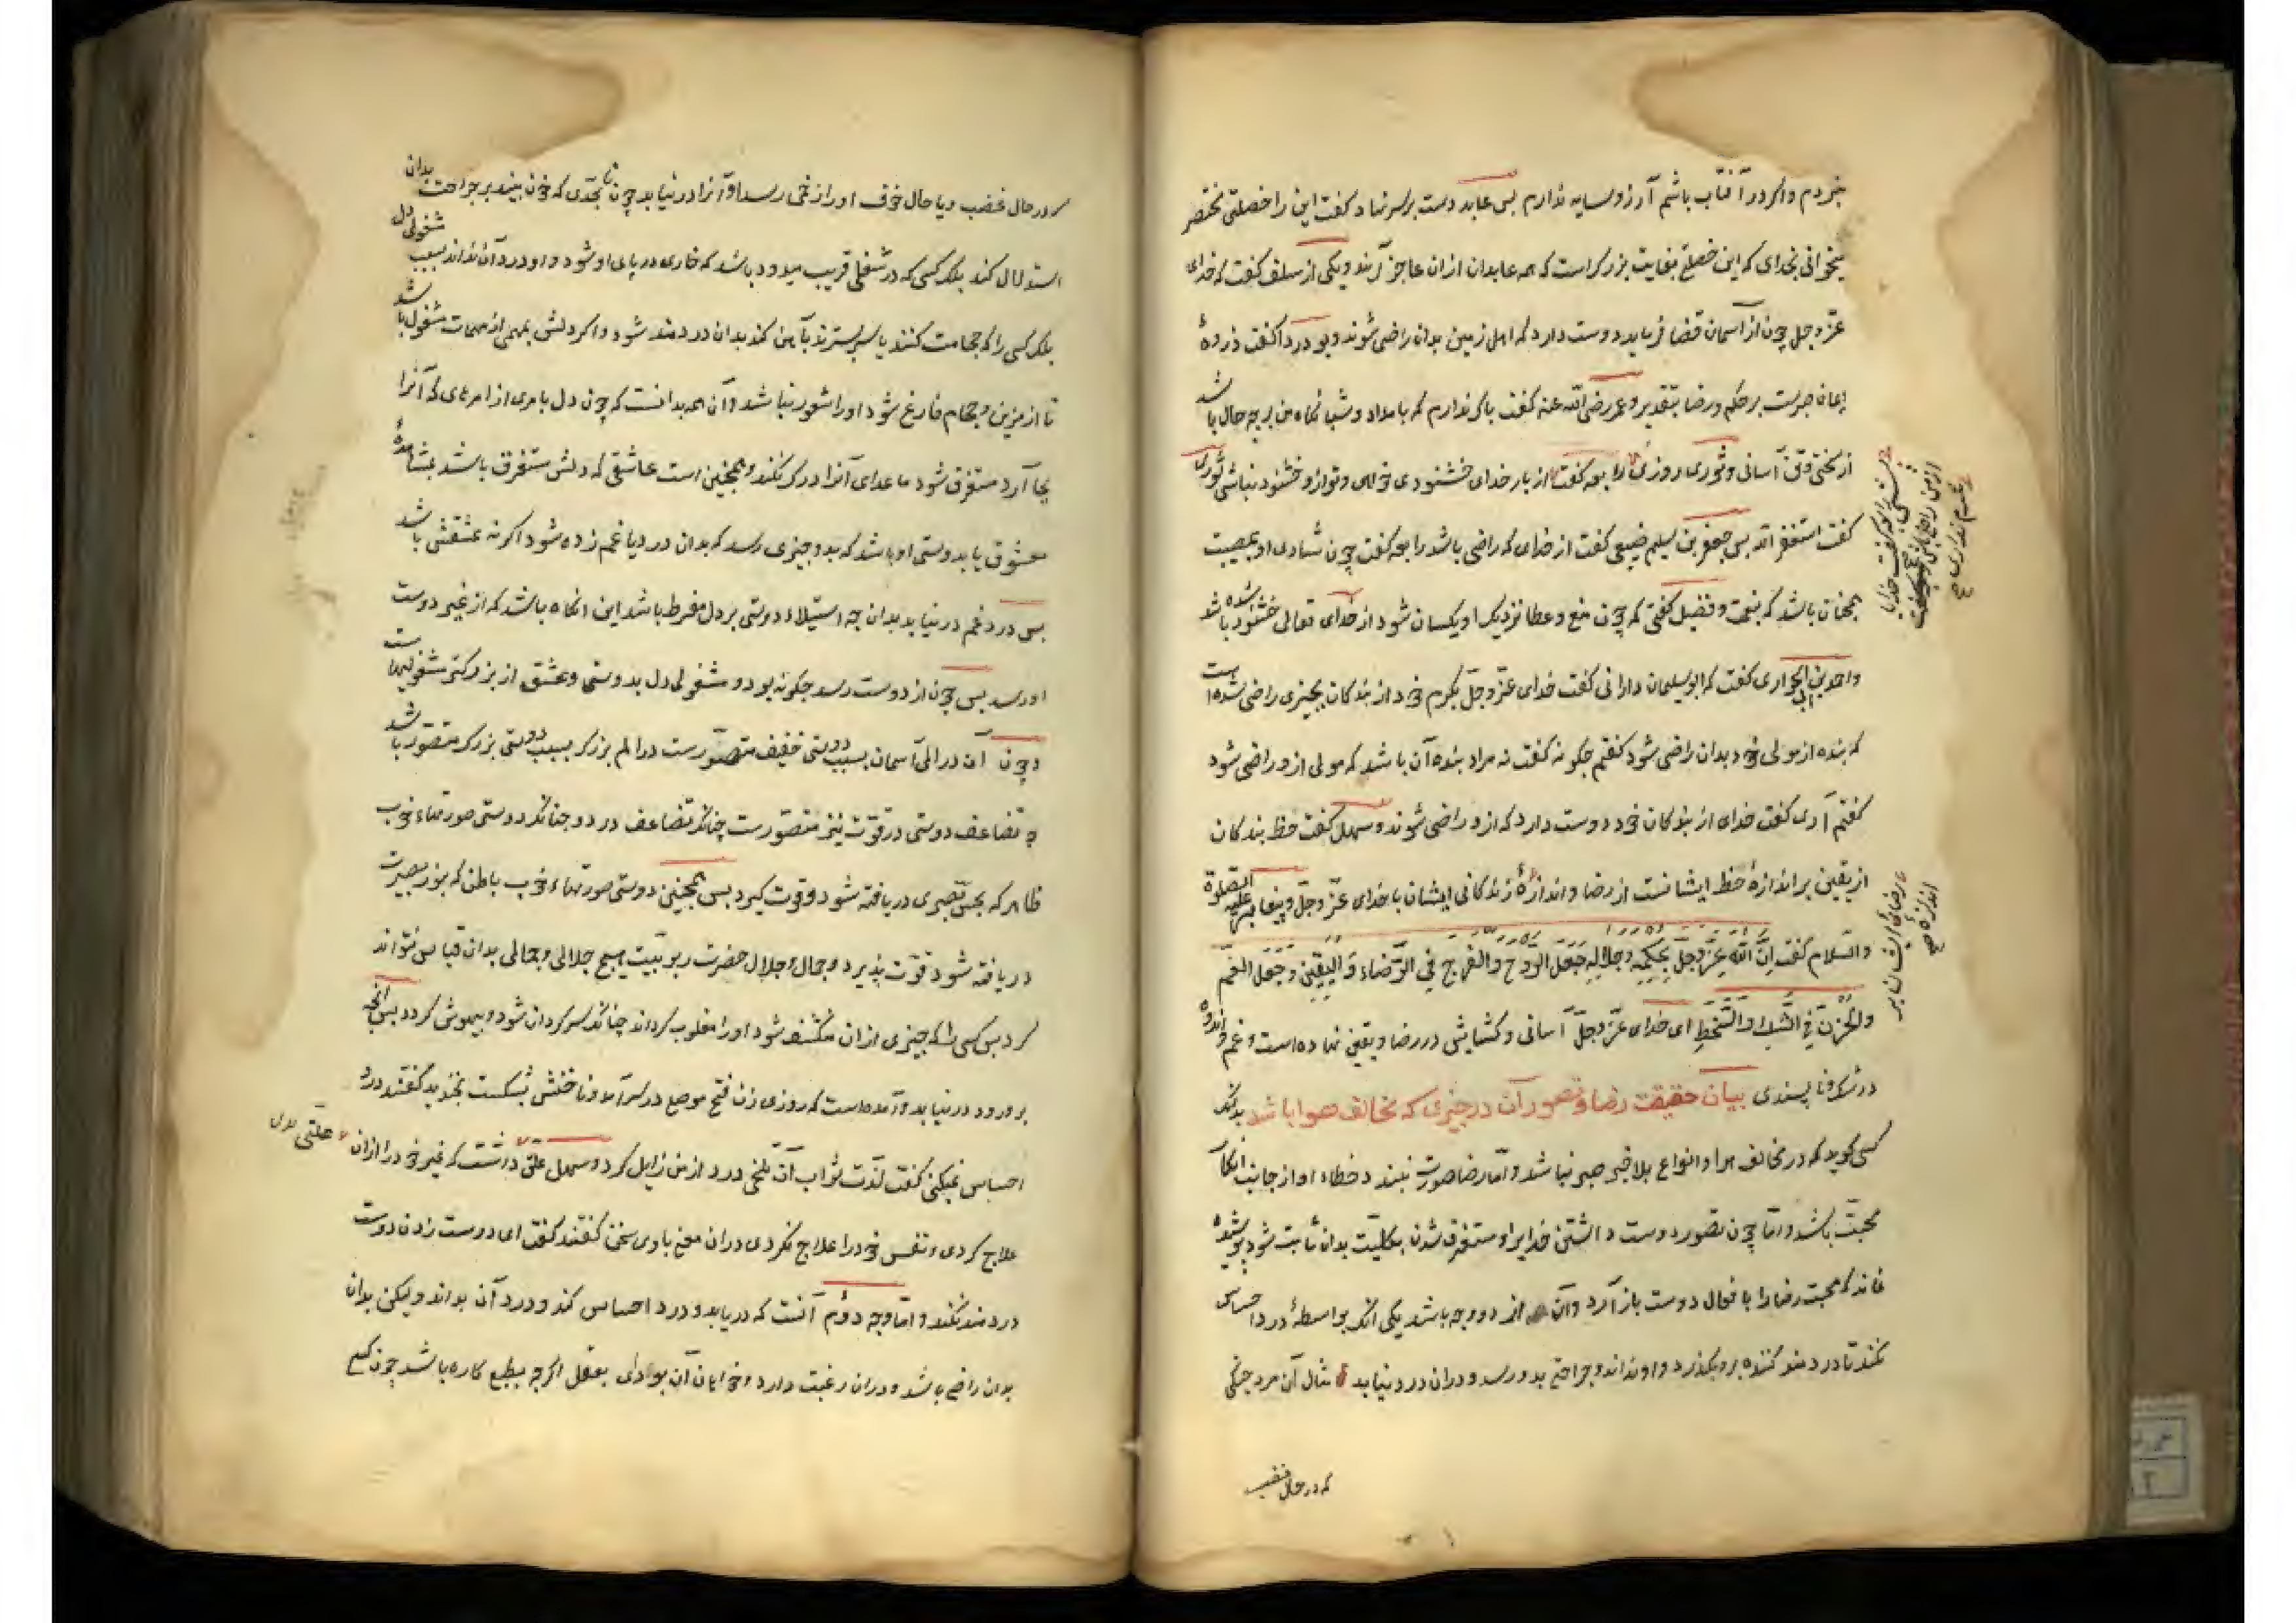 نبردم واکر در آفتاب باشم آرزو سایه ندارم بس عابد دست بر سر نهاد کفت این را خصلتی مختصر
میخوانی بخدای که این خصلتی بغایت بزرکست که همه عابدان ازان عاجز آیند ویکی از سلف کفت که خدای
عزّ وجل چون از آسمان قضا فرماید دوست دارد که اهل زمین بدان راضی شوند وبو دردا کفت ذروهٔ
ایمان صبرست بر حکم ورضا بتقدیر وعمر رضی الله عنه کفت باک ندارم که بامداد وشبانکاه من بر چه حال باشد
از سختی وآسانی وثوری روزی رابعه کفت از بار خدای خشنودی خواهی وتو ازو خشنود نباشی ثوری
کفت استغفر الله بس جعفر بن سلیم ضبیعی کفت از خدای که راضی باشد رابعه کفت چون شادی او بمصیبت
همچنان باشد که بنعمت وفضیل کفتی که چون منع وعطا نزدیک او یکسان شود از خدای تعالی خشنود شده باشد
واحمد بن ابی الحواری کفت که ابو سلیمان دارانی کفت خدای عزّ وجلّ بکرم خود از بندکان بچیزی راضی شده است
که بنده از مولی خود بدان راضی شود کفتم چکونه کفت نه مراد بنده آن باشد که مولی ازو راضی شود
کفتم آری کفت خدای از بندکان خود دوست دارد که ازو راضی شوند وسهل کفت حظ بندکان
از یقین بر اندازهٔ حظ ایشانست از رضا واندازهٔ زندکانی ایشان با خدای عزّ وجلّ وپیغامبر علیه الصلوة
والسّلام کفت اِنَّ اللهَ عَزَّ وَجَلَّ بِحُکْمِهِ وَجَلَالِهِ جَعَلَ الرَّوْحَ وَالْفَرَجَ فِي الرِّضَاءِ وَالْیَقِیْنِ وَجَعَلَ الْغَمَّ
وَالْحُزْنَ فِي الشَّكِ وَالسَّخَطِ ای خدای عزّ وجلّ آسانی وکشایش در رضا ویقین نهاده است وغم واندوه
در شک ونا پسندی بیان حقیقت رضا وتصور آن در چیزی که مخالف هوا باشد بدانکه
کسی کوید که در مخالف هوا وانواع بلا خبر صبر نباشد وامّا رضا صورت نبندد خطاء او از جانب انکار
محبّت باشد وامّا چون تصور دوست داشتن خدایرا ومستغرق شدن بکلیّت بدان ثابت شود پوشیده
نماند که محبت رضا را بافعال دوست باز آرد وآن از دو وجه باشد یکی آنکه بواسطهٔ درد احساس
نکند تا دردمند کننده برو بکذرد واو نداند وجراحتی بدو رسد ودران درد نیابد مثال آن مرد جنکی
که در حال غضب
که در حال غضب ویا حال خوف او را زخمی رسد او آنرا در نیابد چون تا بحدّی که خون بیند بر جراحت بدان
استدلال کند بلکه کسی که در شغلی قریب میدود باشد که خاری در پای او شود واو درد آن نداند بسبب مشغولی دل
بلکه کسی را که حجامت کنند یا سر بسترند بآهن کند بدان دردمند شود واکر دلش بمهمی از مهمات مشغول باشد
تا از مزین وحجام فارغ شود او را شعور نباشد وآن همه بدانست که چون دل بامری از امرهای که آنرا
بجا آرد مستغرق شود ماعدای آنرا درک نکند وهمچنین است عاشقی که دلش مستغرق باشد بمشاهدهٔ
معشوق یا بدوستی او باشد که بدو چیزی رسد که بدان درد یا غم زده شود اکر نه عشقش باشد
بس درد وغم در نیابد بدان چه استیلاء دوستی بر دل مفرط باشد این انکاه باشد که از غیر دوست
او رسد بس چون از دوست رسد چکونه بود ومشغولی دل بدوستی وعشق از بزرکتر مشغولیهاست
وچون آن در المی آسان بسبب دوستی خفیف متصوّرست در الم بزرک بسبب دوستی بزرک متصوّر باشد
چه تضاعف دوستی در قوّت نیز متصوّرست چنانکه تضاعف درد وچنانکه دوستی صورتهاء خوب
ظاهر که بحس بصری دریافته شود وقوت کیرد بس همچنین دوستی صورتهاء خوب باطن که بنور بصیرت
دریافته شود قوّت پذیرد وجمال وجلال حضرت ربوبیّت هیچ جلالی وجمالی بدان قیاس نتواند
کرد بس کسی را که چیزی ازان منکشف شود او را مغلوب کرداند چنانکه سرکردان شود وبیهوش کردد بس آنچه
برو رود در نیابد وآمده است که روزی زن فتح موصلی در سرآمد وناخنش بشکست بخندید کفتند درد
احساس نمیکنی کفت لذّت ثواب آن تلخی درد از من زایل کرد وسهل علتی داشت که غیر خود را ازان علتی
علاج کردی ونفس خود را علاج نکردی دران معنی با وی سخن کفتند کفت ای دوست زدن دوست
دردمند نکند وامّا وجه دوّم آنست که دریابد ودرد احساس کند ودرد آن بداند ولیکن بدان
بدان راضی باشد ودران رغبت دارد وخواهان آن بود ای بعقل اکرچه بطبع کاره باشد چون کسی